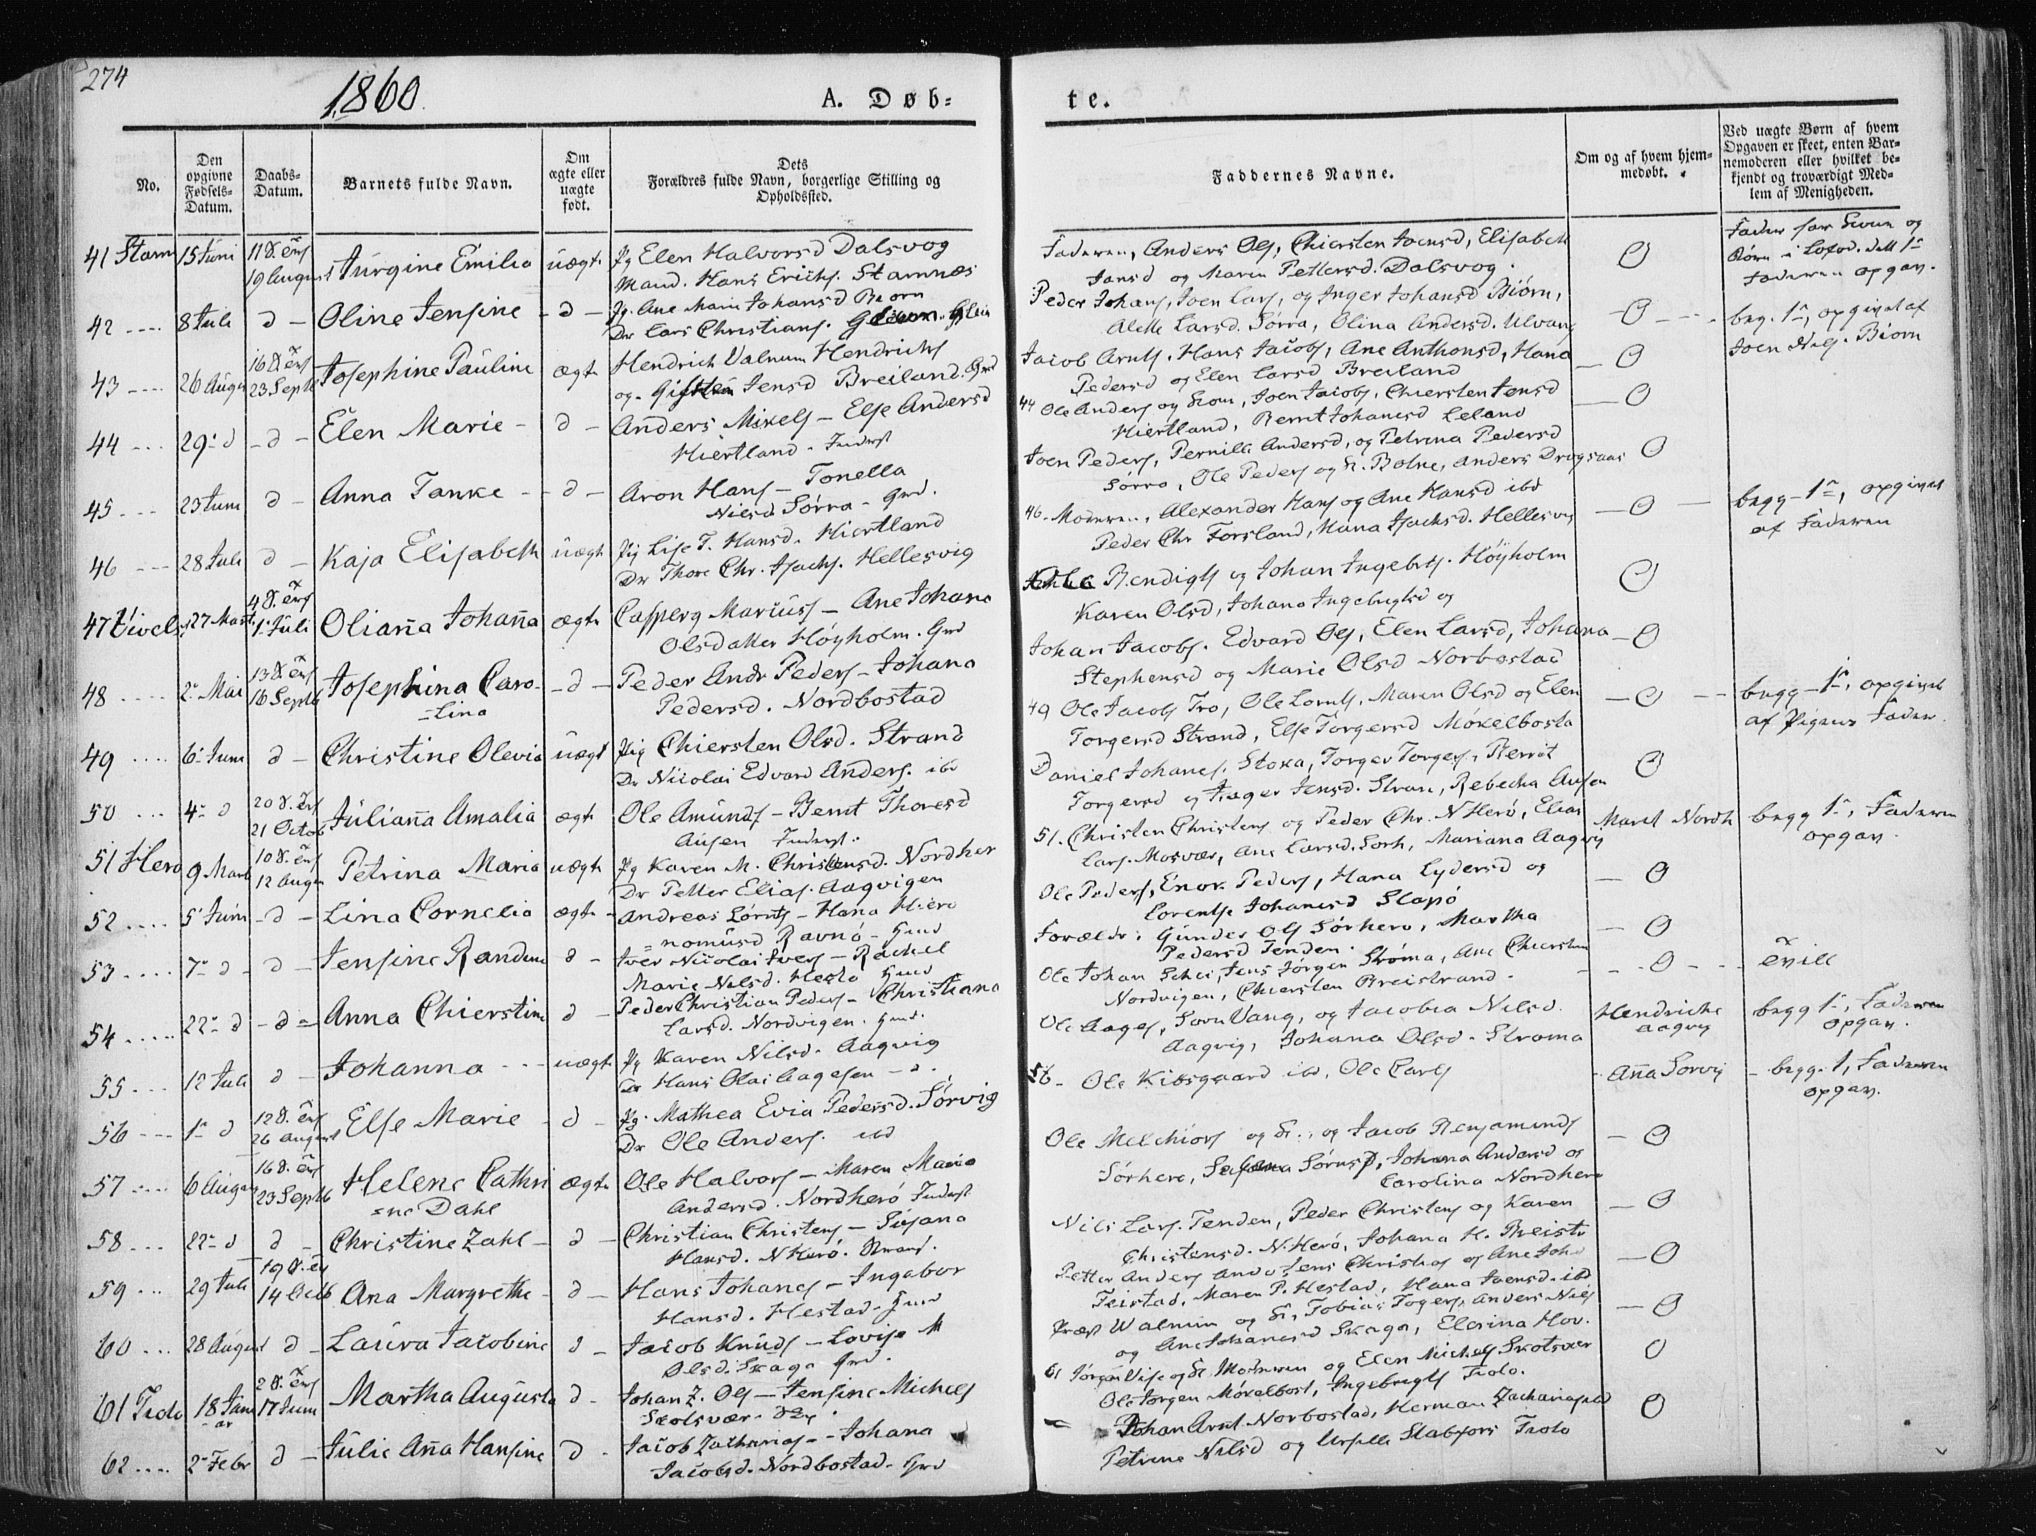 274
1860.
A. Døb-
te.
No.
Den opgivne Fødsels-Datum.
Daabs-Datum.
Barnets fulde Navn.
Om ægte eller uægte født.
Dets Forældres fulde Navn, borgerlige Stilling og Opholdssted.
Faddernes Navne.
Om og af hvem hjemmedøbt.
Ved uægte Børn af hvem Opgaven er skeet, enten Barnemoderen eller hvilket bekjendt og troværdigt Medlem af Menigheden.
41 Stam 15 Juni 19 August Jürgine Emilia uægt Pg Elen Halvorsd Dalsvog
Hans Erichs. Stamnæs
Faderen, Anders Ols, Chiersten Joensd, Elisabeth
Jansd og Maren Pettersd. Dalsvog. O
Faderen opgav.
42 8 Juli d Oline Jensine d Pg. Ane Maria Johansd Biørn
Dr Lars Christians.
Peder Johans, Joen Lars, og Inger Johansd Biørn,
Alette Larsd. Sørra, Olina Andersd. Ulvang O beg. 1ste, opgivet af
Joen Nils. Biørn
43 26 August 16 S. e. Trf 23 Septb Josephine Pauline ægte Hendrich Valnum Hendrichs
og Jensd Breiland. Grd
Jacob Arnts. Hans Jacobs, Ane Anthonsd, Hana
Pedersd og Elen Larsd Breiland O
44 29 d d Elen Marie d Anders Mikels - Else Andersd
Hiertland - Inderst
44 Ole Anders og Kone, Joen Jacobs, Chiersten Jensd
Hiertland, Bernt Johansd Leland O
45 23 Juni d Anna Tanke d Aron Hans - Tonella
Nilsd Sørra - Grd.
Joen Peders, Pernille Andersd, og Petrina Pedersd
Sørra, Ole Peders og K. Bolne, Anders Drugsaas O
46 28 Juli d Kaja Elisabeth uægt Pig Lise T. Hansd. Hiertland
Dr Thore Chr. Isachs. Hellesvig
46. Moderen, Alexander Hans og Ane Hansd ibd
Peder Chr Forsland, Hana Isachsd. Hellesvig O begg 1ste, opgivet
af Faderen
47 Vivels 27 Marts 4 S. e. Trf 1 Juli Olianna Johanna ægte Casperg Mariüs - Ane Johana
Olsdatter Høyholm. Grd
Bendigts og Johan Ingebrts. Høyholm
Karen Olsd, Johana Ingebrigtsd og O
48 2 Mai 13 S. e. Trf 16 Septb Josephina Caro-
=lina d Peder Andr Peders - Johana
Pedersd. Nordbostad
Johan Jacobs. Edvard Ols, Elen Larsd, Johana
Stephensd og Marie Olsd Norbostad O
49 6 Juni d Christine Olevia uægt Pig Chiersten Olsd. Strand
Dr Nicolai Edvard Anders. ibd
49 Ole Jacobs Tro, Ole Lornts, Maren Olsd og Elen
Torgersd Strand, Else Torgersd Møkelbosta O begg 1ste, opgivet
af Pigens Fader.
50 4 d 20 S. e. Trf 21 Octob Julianna Amalia ægte Ole Amunds - Berit Thoresd
Ausen Inderst.
Daniel Johanes. Stoka, Torger Torgers, Berrit
Torgersd og Inger Jensd. Stran, Rebecka Ausen O
51 Herø 9 Marts 10 S. e. Trf 12 August Petrina Maria uægt Pg Karen M. Christensd. Nordher
Dr Petter Elias. Aagvigen
51. Christen Christens og Peder Chr. N Herø, Elias
Lars. Mosvær, Ane Larsd. Sorh, Mariana Aagvig Maret Nordh begg 1ste, Faderen
opgav.
52 5 Juni d Lina Cornelia ægte Andreas Lornts - Hana Hiero
=nomüsd Ravnø - Grd
Ole Peders, Enok Peders, Hana Eydersd og
Lorentse Johansd Slapø O
53 7 d d Jensine Randine d Iver Nicolai Ivers - Rachel
Marie Nilsd. Hestø Grd
Forældr: Gunder Ols Sørhero, Martha
Pedersd Tenden. O
54 22 d d Anna Chierstine d Peder Christian Peders - Christiana
Larsd. Nordvigen. Grd.
Ole Johan Schei, Jens Jørgen Strøma, Ane Chiersten
Nordvigen, Chiersten Breistrand. O
55 12 Juli d Johanna uægt Pg Karen Nilsd. Aagvig
Dr Hans Olai Aagesen - d.
Ole Aages, Soen Vang, og Jacobia Nilsd.
Aagvig, Johana Olsd. Strøma Hendricke
Aagvig begg 1ste, Faderen
opgav.
56 1 d 12 S. e. Trf 26 August Else Marie d Pg. Mathea Evia Pedersd. Sørvig
Dr Ole Anders. ibd
56 Ole Kibsgaard ibd, Ole Carls Anna Sorvig begg. 1, Faderen
opgav.
57 6 August 16 S. e. Trf 23 Septb Helene Cathri
=ne Dahl ægte Ole Halvors - Maren Maria
Andersd. Nordherø Inderst
Ole Melchiors og K., og Jacob Benjamins
Sørhero, Johana Andersd og
Carolina Nordhero O
58 22 d d Christine Zahl d Christian Christens - Susana
Hansd. N Herø.
Nils Lars. Tenden, Peder Christens og Karen
Christensd. N. Herø, Johana H. Breistr O
59 29 Juli 19 S. e. Trf 14 Octb Ana Margrethe d Hans Johanes - Ingabor
Hansd. Hestad - Grd
Petter Anders Jens Christens og Ane Joha
Teistad, Maren P. Hestad, Hana Joensd. ibd O
60 28 August d Laura Jacobine d Jacob Knuds - Lovise M
Olsd. Skaga Grd.
Præst Walnum og K, Tobias Togers, Anders Nils
og Ane Johansd Skaga, Elerina Hov. O
61 Tiolo 18 Januar 2 S. e. Trf 17 Juni Martha Augusta d Johan Z. Ols - Jensine Michels
Skotsvær
61 Jørgen Vise og K. Moderen og Elen Michels Skotsvær
Ole Torgen Møkelbost, Ingebrigts Tiolo. O
62 2 Febr d Julie Anna Hansine d Jacob Zacharias - Johana
Jacobsd. Nordbostad - Grd
Johan Arnt Norbostad, Herman Zachariasd
Petrine Nilsd og Ursille Slabfors Tiolo O